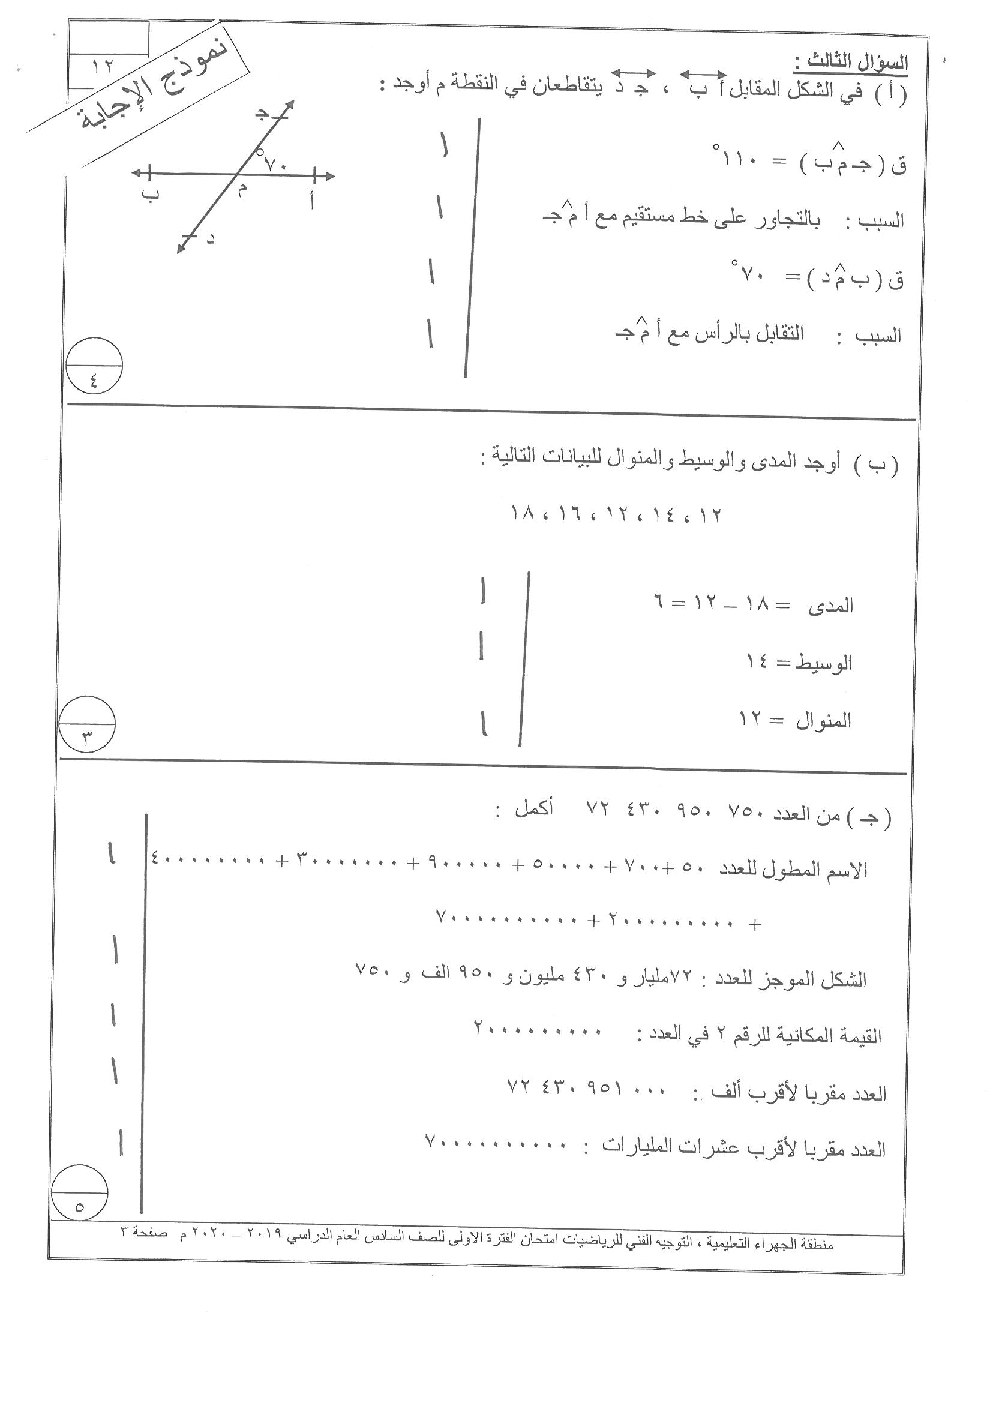 ١٢
نموذج الإجابة
السؤال الثالث :
( أ ) في الشكل المقابل أ ب ، جـ د يتقاطعان في النقطة م أوجد :
جـ
٧٠°
ب
م
أ
د
ق ( جـ م ب ) = ١١٠° ١
السبب : بالتجاور على خط مستقيم مع أ م جـ ١
ق ( ب م د ) = ٧٠° ١
السبب : التقابل بالرأس مع أ م جـ ١
٤
( ب ) أوجد المدى والوسيط والمنوال للبيانات التالية :
١٢ ، ١٤ ، ١٢ ، ١٦ ، ١٨
المدى = ١٨ – ١٢ = ٦ ١
الوسيط = ١٤ ١
المنوال = ١٢ ١
٣
( جـ ) من العدد ٧٥٠ ٩٥٠ ٤٣٠ ٧٢ أكمل :
الاسم المطول للعدد ٥٠ + ٧٠٠ + ٥٠٠٠٠ + ٩٠٠٠٠٠ + ٣٠٠٠٠٠٠٠ + ٤٠٠٠٠٠٠٠٠ ١
+ ٢٠٠٠٠٠٠٠٠٠ + ٧٠٠٠٠٠٠٠٠٠٠
الشكل الموجز للعدد : ٧٢مليار و ٤٣٠ مليون و ٩٥٠ الف و ٧٥٠ ١
القيمة المكانية للرقم ٢ في العدد : ٢٠٠٠٠٠٠٠٠٠ ١
العدد مقربا لأقرب ألف : ٠٠٠ ٩٥١ ٤٣٠ ٧٢ ١
العدد مقربا لأقرب عشرات المليارات : ٧٠٠٠٠٠٠٠٠٠٠ ١
٥
منطقة الجهراء التعليمية ، التوجيه الفني للرياضيات امتحان الفترة الاولى للصف السادس العام الدراسي ٢٠١٩ – ٢٠٢٠ م صفحة ٣